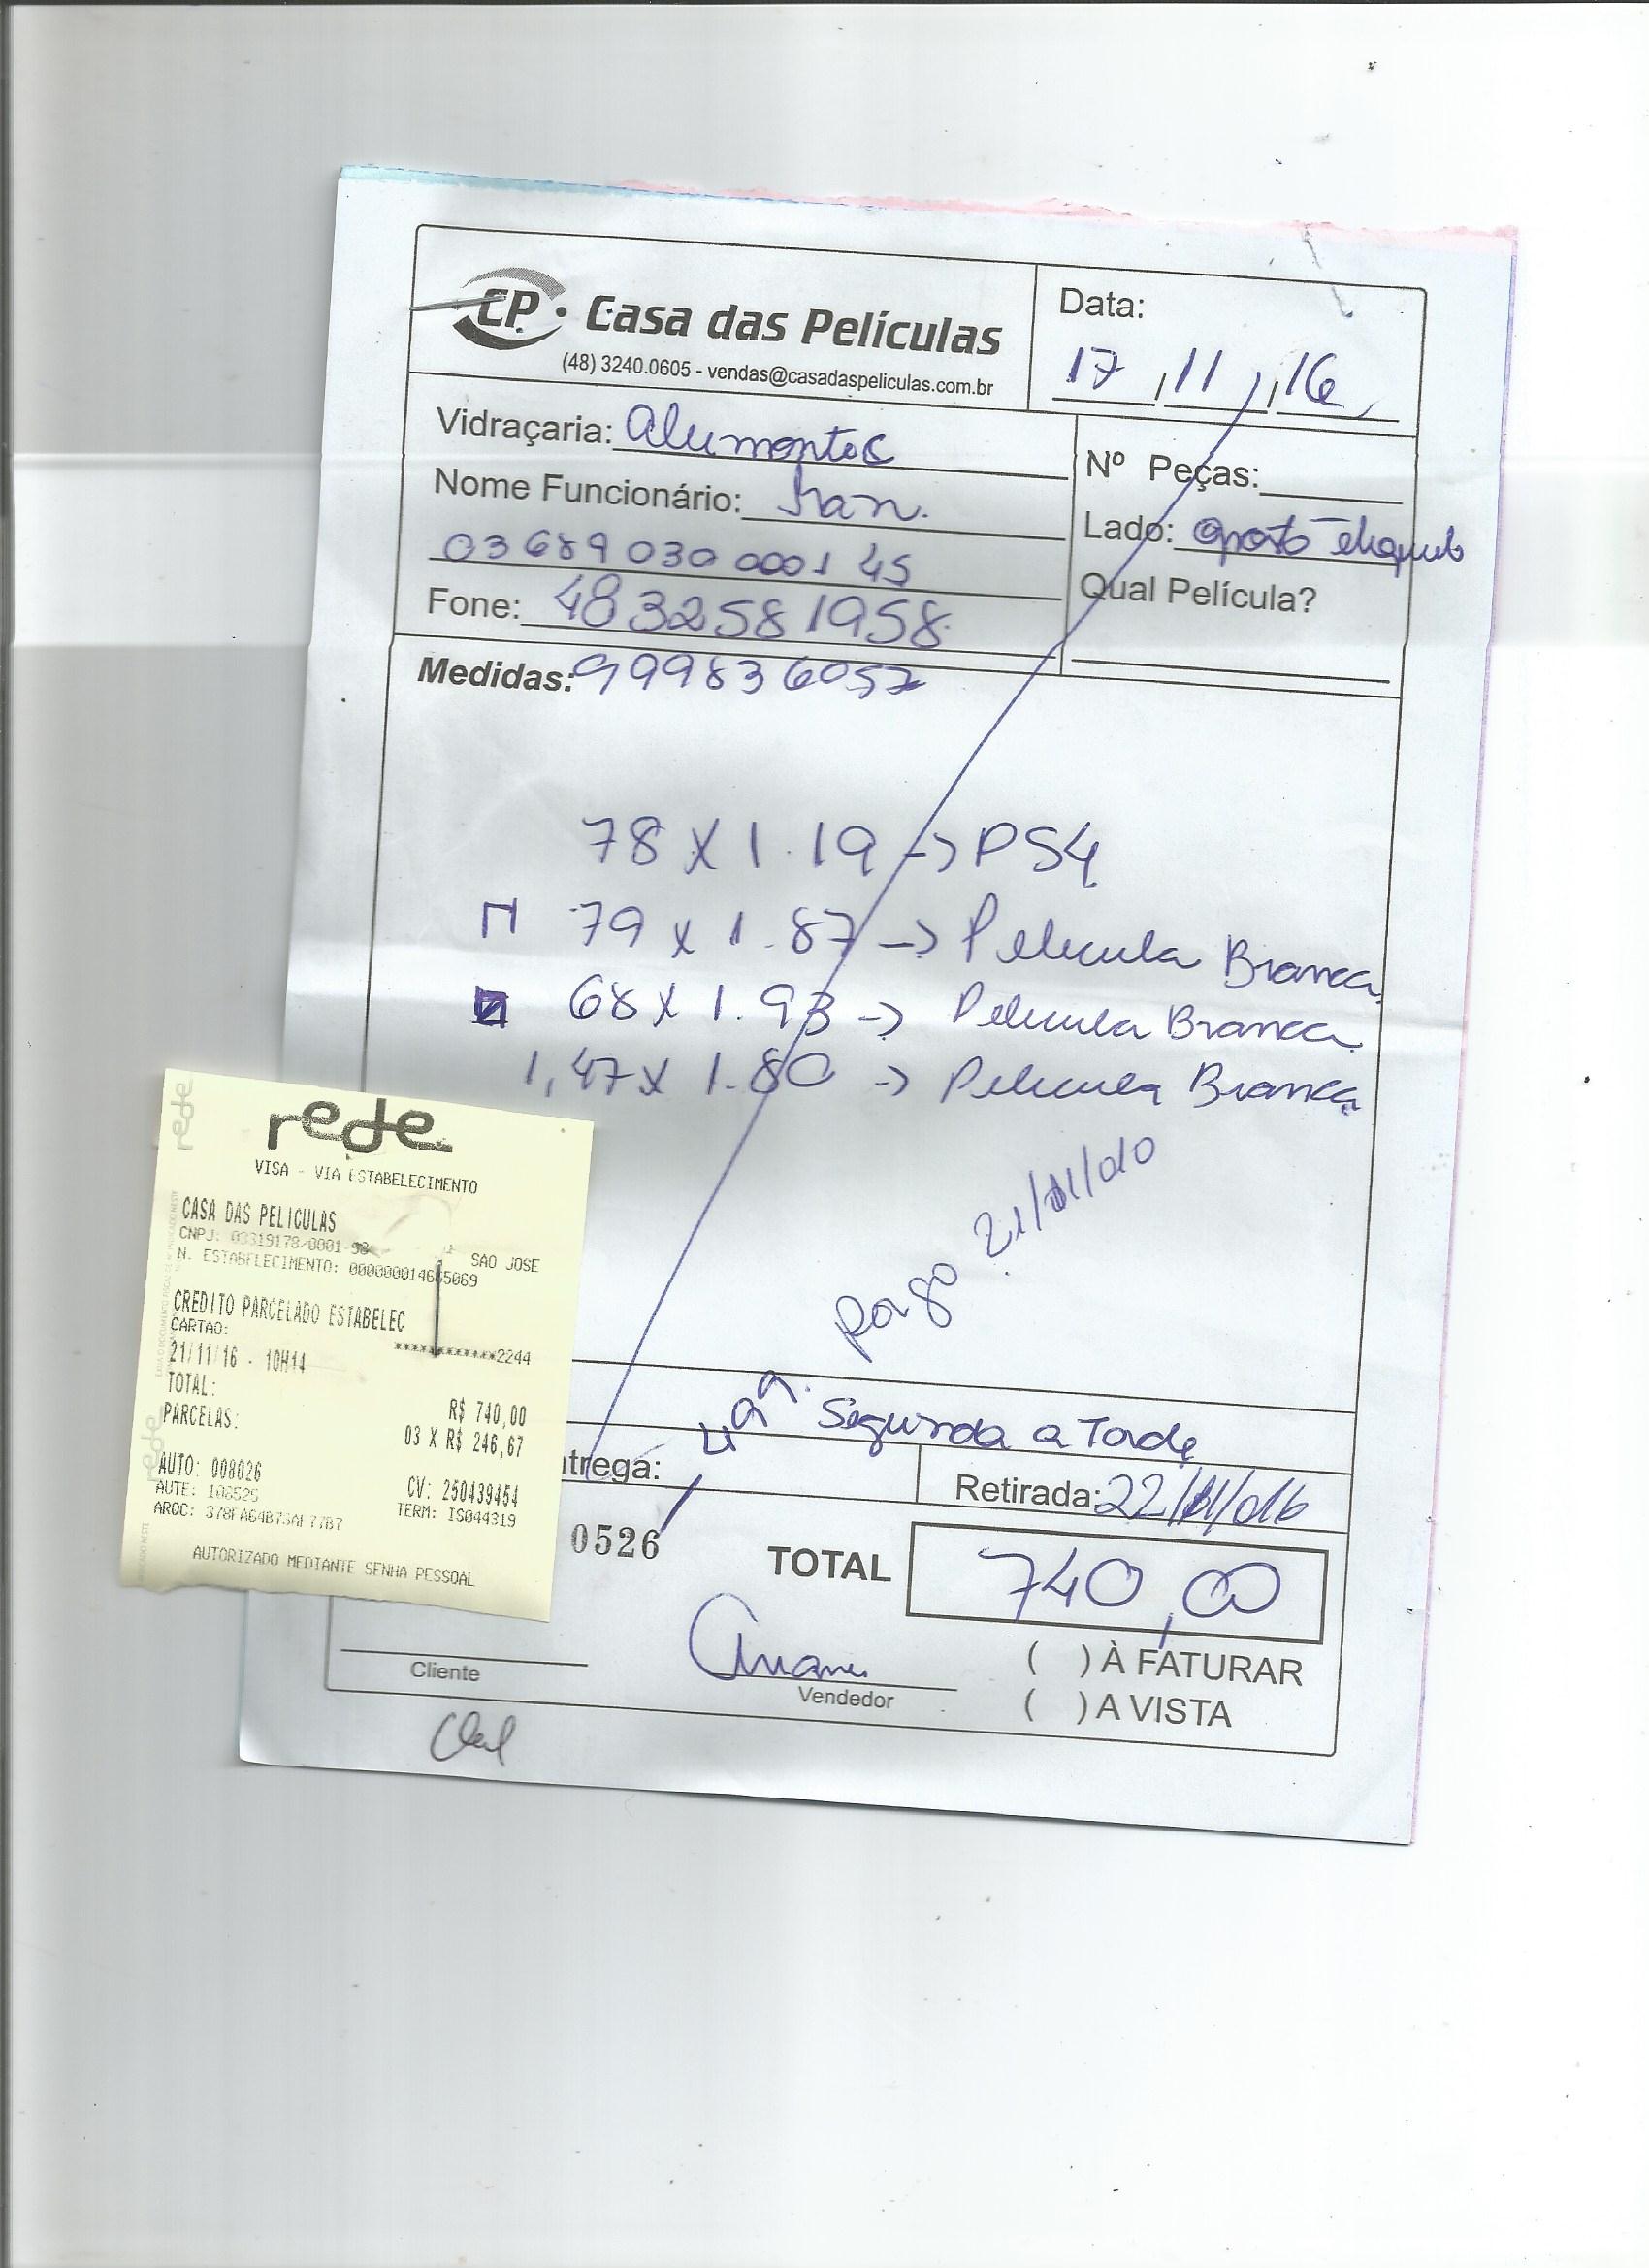 CP. Casa das Películas
(48) 3240.0605 - vendas@casadaspeliculas.com.br
Data:
17/11/16
Vidraçaria: Alumontec
Nome Funcionário: Ivan.
03 689 030 0001 45
Fone: 48 32581958
Nº Peças:
Lado: oposto etiqueta
Qual Película?
Medidas: 999836057
78 X 1.19 -> PS4
79 x 1.87 -> Pelicula Branca
68 x 1.93 -> Pelicula Branca
1,47 x 1.80 -> Pelicula Branca
pago 21/11/010
Segunda a Tarde
trega:
Retirada: 22/11/016
0526
TOTAL 740,00
( ) À FATURAR
( ) A VISTA
Cliente
Vendedor
rede
VISA - VIA ESTABELECIMENTO
CASA DAS PELICULAS
CNPJ: 03319178/0001-98
SAO JOSE
N. ESTABELECIMENTO: 000000014665069
CREDITO PARCELADO ESTABELEC
CARTAO: ************2244
21/11/16 - 10H14
TOTAL: R$ 740,00
PARCELAS: 03 X R$ 246,67
AUTO: 008026 CV: 250439454
AUTE: 108525 TERM: IS044319
AROC: 378FA64B73AF77B7
AUTORIZADO MEDIANTE SENHA PESSOAL